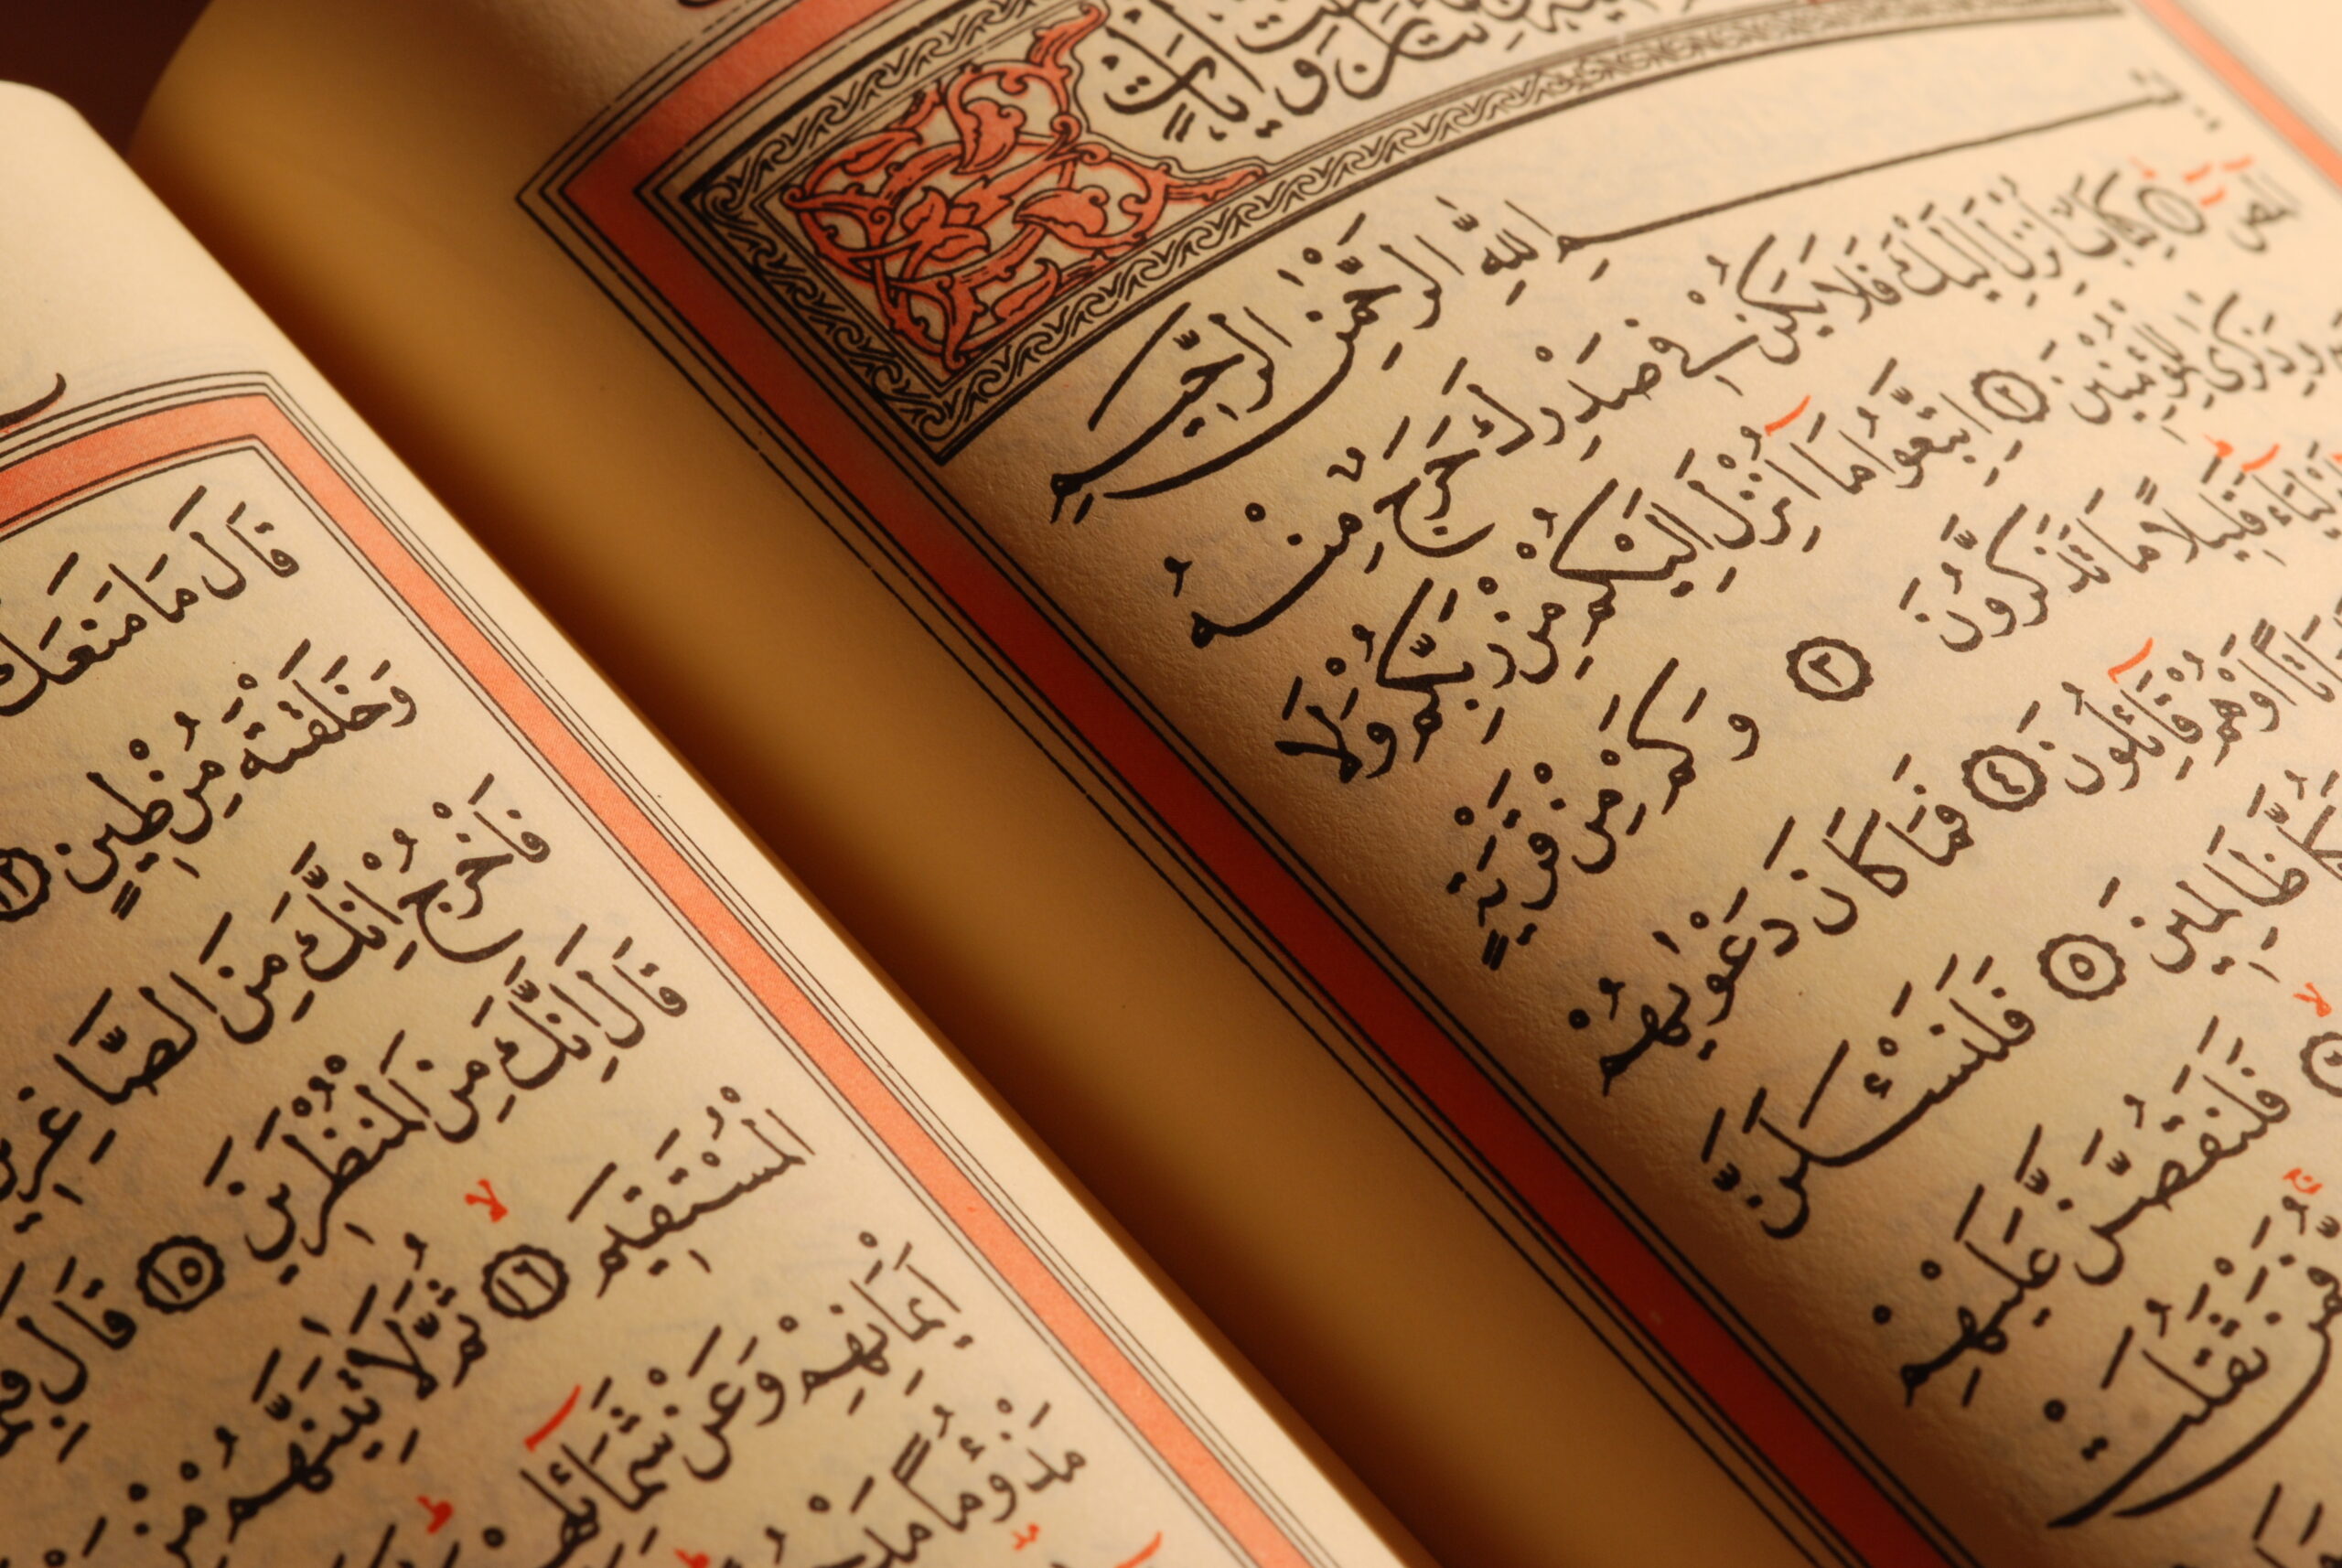 بِسْمِ اللّٰهِ الرَّحْمٰنِ الرَّحِيمِ
الٓمٓصٓ ۝١ كِتَابٌ اُنْزِلَ اِلَيْكَ فَلَا يَكُنْ فِي صَدْرِكَ حَرَجٌ مِنْهُ
وَذِكْرٰى لِلْمُؤْمِنِينَ ۝٢ اِتَّبِعُوا مَٓا اُنْزِلَ اِلَيْكُمْ مِنْ رَبِّكُمْ وَلَا
قَلِيلًا مَا تَذَكَّرُونَ ۝٣ وَكَمْ مِنْ قَرْيَةٍ
اَوْ هُمْ قَٓائِلُونَ ۝٤ فَمَا كَانَ دَعْوٰيهُمْ
ظَالِمِينَ ۝٥ فَلَنَسْـَٔلَنَّ
فَلَنَقُصَّنَّ عَلَيْهِمْ
فَمَنْ ثَقُلَتْ
قَالَ مَا مَنَعَكَ
وَخَلَقْتَهُ مِنْ طِينٍ ۝١٢
فَاخْرُجْ اِنَّكَ مِنَ الصَّاغِرِينَ
قَالَ اِنَّكَ مِنَ الْمُنْظَرِينَ ۝١٥ قَالَ
الْمُسْتَقِيمَ ۝١٦ ثُمَّ لَاٰتِيَنَّهُمْ مِنْ
اَيْمَانِهِمْ وَعَنْ شَمَٓائِلِهِمْ
مَذْؤُمًا